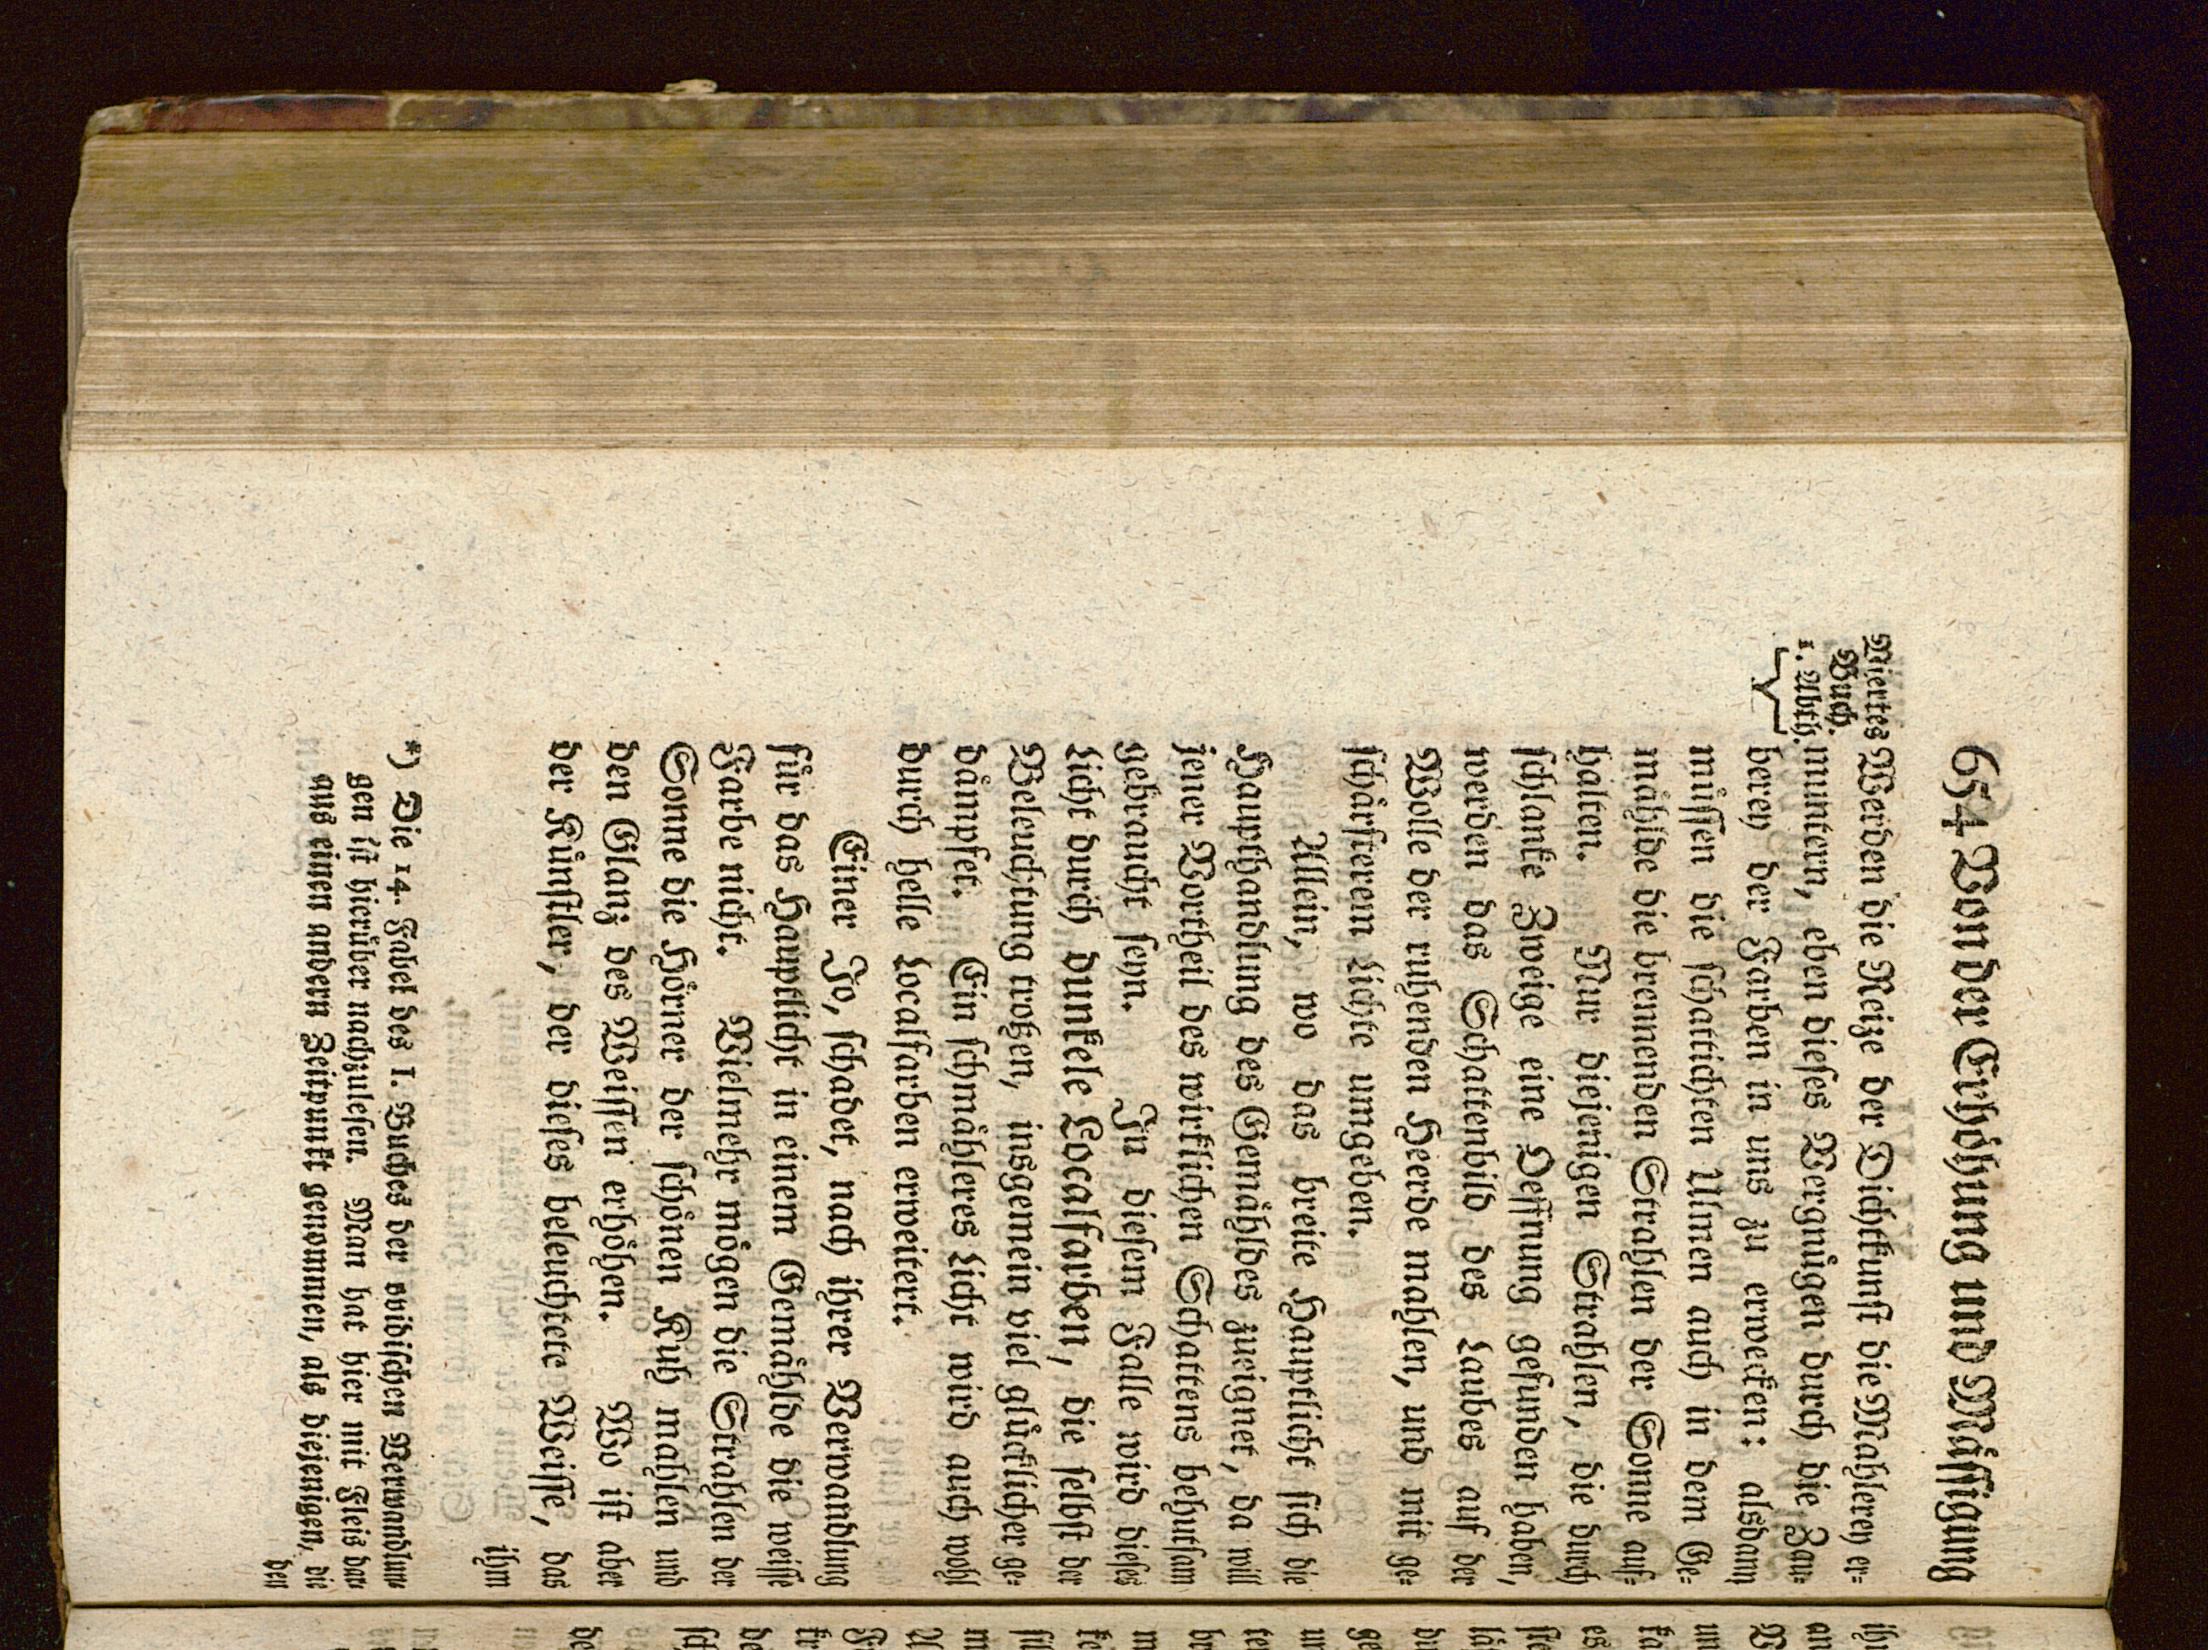 654 Von der Erhöhung und Mässigung
Viertes
Buch.
1. Abth.
Werden die Reize der Dichtkunst die Mahlerey er-
muntern, eben dieses Vergnügen durch die Zau-
berey der Farben in uns zu erwecken: alsdann
müssen die schattichten Ulmen auch in dem Ge-
mählde die brennenden Strahlen der Sonne auf-
halten. Nur diejenigen Strahlen, die durch
schlanke Zweige eine Oeffnung gefunden haben,
werden das Schattenbild des Laubes auf der
Wolle der ruhenden Heerde mahlen, und mit ge-
schärfterem Lichte umgeben.
Allein, wo das breite Hauptlicht sich die
Haupthandlung des Gemähldes zueignet, da will
jener Vortheil des wirklichen Schattens behutsam
gebraucht seyn. In diesem Falle wird dieses
Licht durch dunkele Localfarben, die selbst der
Beleuchtung trotzen, insgemein viel glücklicher ge-
dämpfet. Ein schmähleres Licht wird auch wohl
durch helle Localfarben erweitert.
Einer Jo, schadet, nach ihrer Verwandlung
für das Hauptlicht in einem Gemählde die weisse
Farbe nicht. Vielmehr mögen die Strahlen der
Sonne die Hörner der schönen Kuh mahlen und
den Glanz des Weissen erhöhen. Wo ist aber
der Künstler, der dieses beleuchtete Weisse, das
ihm
*) Die 14. Fabel des I. Buches der ovidischen Verwandlun
gen ist hierüber nachzulesen. Man hat hier mit Fleis das
aus einen andern Zeitpunkt genommen, als diejenigen, die
den